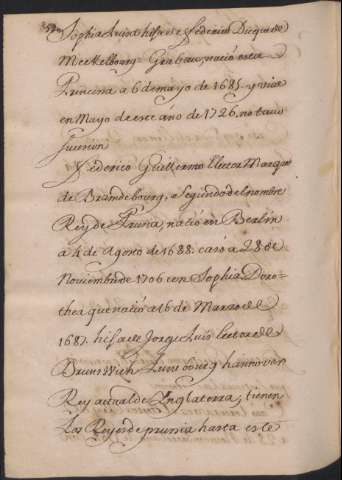 Sophia Luisa hija de Federico Duque de
Meckelbourg-Grabau, nació esta
Princesa a 6 de mayo de 1685. y vive
en Mayo de este año de 1726, no tuvo
succesion
Federico Guillermo Elector Marque
de Brandebourg, e segundo del nombre
Rey de Prusia, nació en Berlin
a 4 de Agosto de 1688. casó a 28 de
Noviembre de 1706 con Sophia Doro-
thea que nació a 16 de Marzo de
1687. hija de Jorge Luis lector de
Brunswich Luneбourg hannover
Rey actual de Inglaterra, tienen
Los Reyes de prusia hasta este